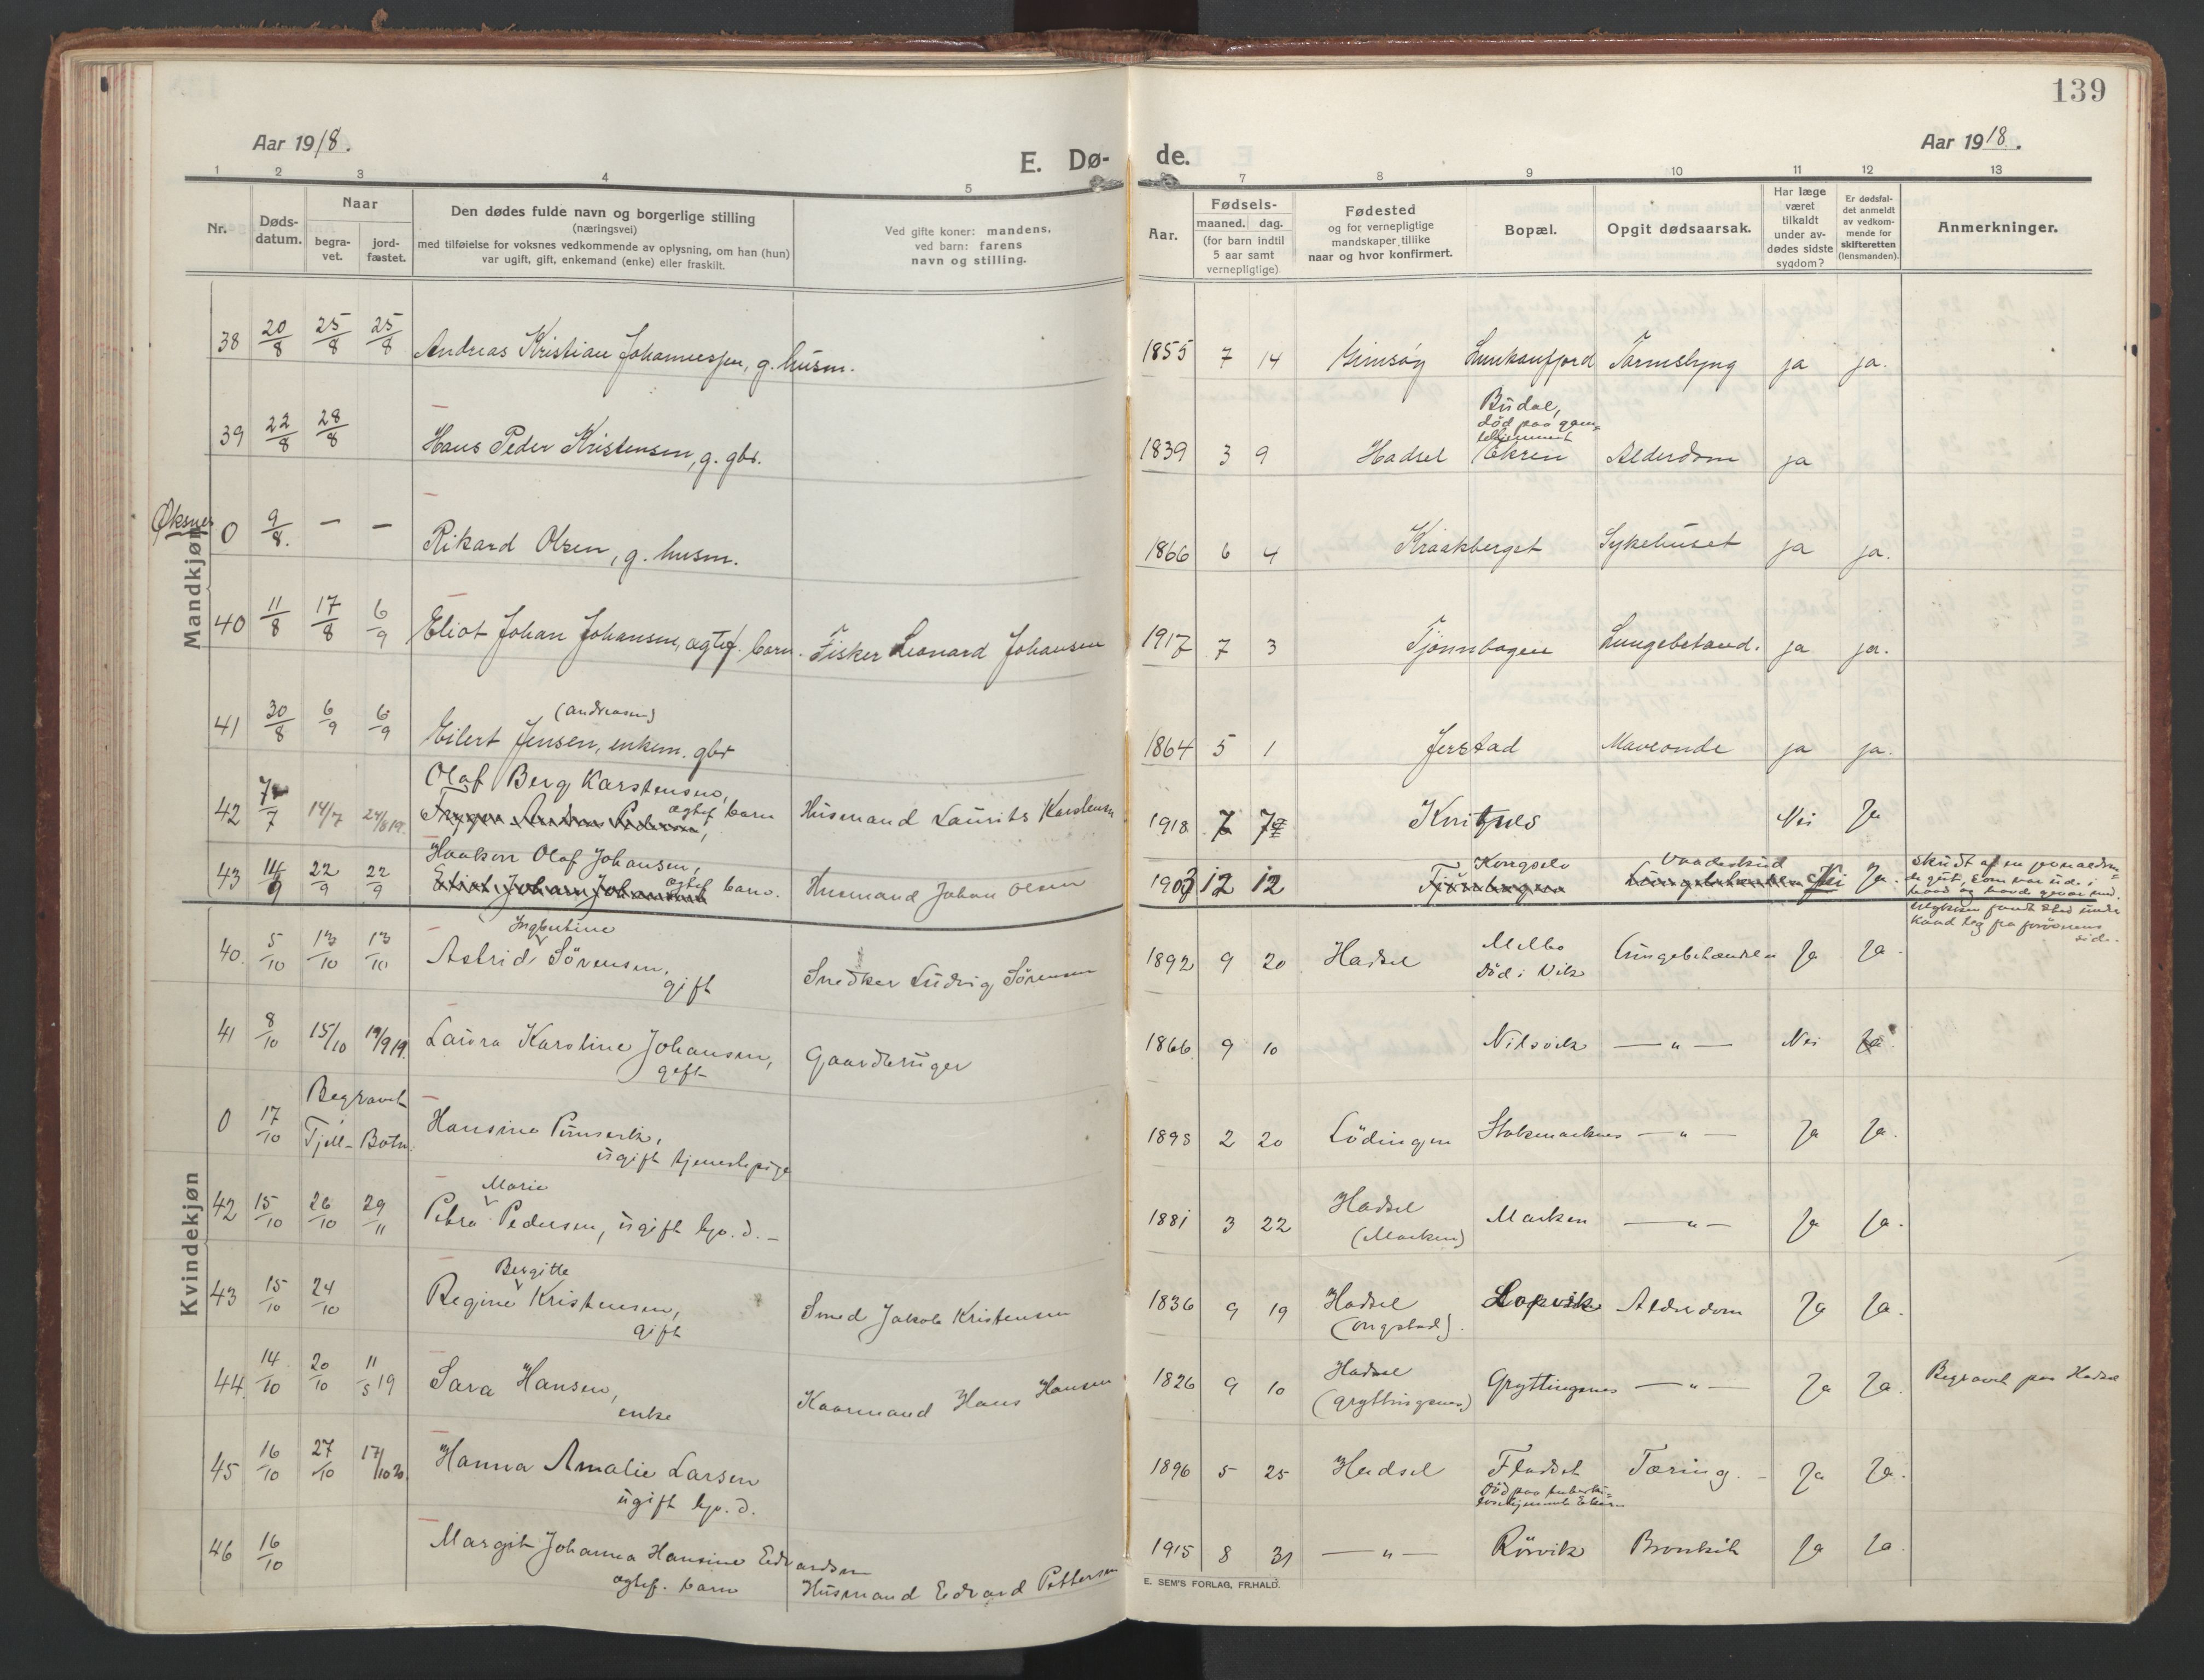 139
Aar 1918.
E. Dø-
de.
Aar 1918.
1 2 3 4 5 7 8 9 10 11 12 13
Nr.
Døds-
datum.
Naar
begra-
vet.
jord-
fæstet.
Den dødes fulde navn og borgerlige stilling
(næringsvei)
med tilføielse for voksnes vedkommende av oplysning, om han (hun)
var ugift, gift, enkemand (enke) eller fraskilt.
Ved gifte koner: mandens,
ved barn: farens
navn og stilling.
Aar.
Fødsels-
maaned. dag.
(for barn indtil
5 aar samt
vernepligtige)
Fødested
og for vernepligtige
mandskaper tillike
naar og hvor konfirmert.
Bopæl.
Opgit dødsaarsak.
Har læge
været
tilkaldt
under av-
dødes sidste
sygdom?
Er dødsfal-
det anmeldt
av vedkom-
mende for
skifteretten
(lensmanden).
Anmerkninger.
Mandkjøn
38 20/8 25/8 25/8 Andreas Kristian Johannessen, g. husm. 1855 7 14 Gimsøy ja ja.
39 22/8 28/8 Hans Peder Kristensen, g. gbr. 1839 3 9 Hadsel Budal,
død paa gam=
lehjemmet
Ekren Alderdom ja
Øksnes
0 9/8. — — Rikard Olsen, g. husm. 1866 6 4 Kraakberget Sykehuset ja ja.
40 11/8 17/8 6/9 Eliot Johan Johansen, ægtef. barn. Fisker Leonard Johansen 1917 7 3 Tjønnhagen Lungebetænd. ja ja.
41 30/8 6/9 6/9 (Andreasen)
Eilert Jensen, enkem. gbr 1864 5 1 Jerstad Mavesonde ja ja.
42 7/7 14/7 24/8 19. Olaf Berg Karstensen,
ægtef barn Husmand Laurits Karstensen 1918 7 7 Kvitnes Nei Ja
43 14/9 22/9 22/9 Haakon Olaf Johansen,
Eliot Johan Johansen ægtef barn. Husmand Johan Olsen 1903 12 12 Kongselv
Tjønnhagen Vaadeskud Nei Ja.
Skudt af en jevnaldren=
de gut, som var ude i
Kvindekjøn
40. 5/10 13/10 13/10 Ingbertine
Astrid Sørensen,
gift Snedker Ludvig Sørensen 1892 9 20 Hadsel Melbo
Død i Vik Lungebetændelse Ja Ja.
41 8/10 15/10 19/9 19. Laura Karoline Johansen,
gift Gaardbruger 1866 9 10 Nilsvik — " — Nei Ja.
0 17/10 Begravet
Tjell- Botn. Hansine
ugift tjenestepige 1898 2 20 Lödingen Stokmarknes — " — Ja Ja.
42 15/10 26/10 29/11 Marie
Petra Pedersen, ugift hp. d. — 1881 3 22 Hadsel
(Marken) Marken — " — Ja Ja.
43 15/10 24/10 Bergitte
Regine Kristensen,
gift Smed Jakob Kristensen 1836 9 19 Hadsel
(Ongstad). Lopvik Alderdom Ja Ja.
44. 14/10 20/10 11/5 19 Sara Hansen,
enke Kaarmand Hans Hansen 1826 9 10 Hadsel
(Gryttingsnes) Gryttingsnes — " — Ja Ja. Begravet paa Hadsel
45 16/10 27/10 17/10 20. Hanna Amalie Larsen
ugift hp. d. 1896 5 25 Hadsel Fladset
Død paa tuberku=
losehjemmet Ekren Tæring. — Ja Ja.
46 16/10 Margit Johanna Hansine Edvardsen
ægtef. barn Husmand Edvard Pettersen 1915 8 31 — " — Rørvik Bronkit Ja Ja
E. SEM'S FORLAG, FR.HALD.